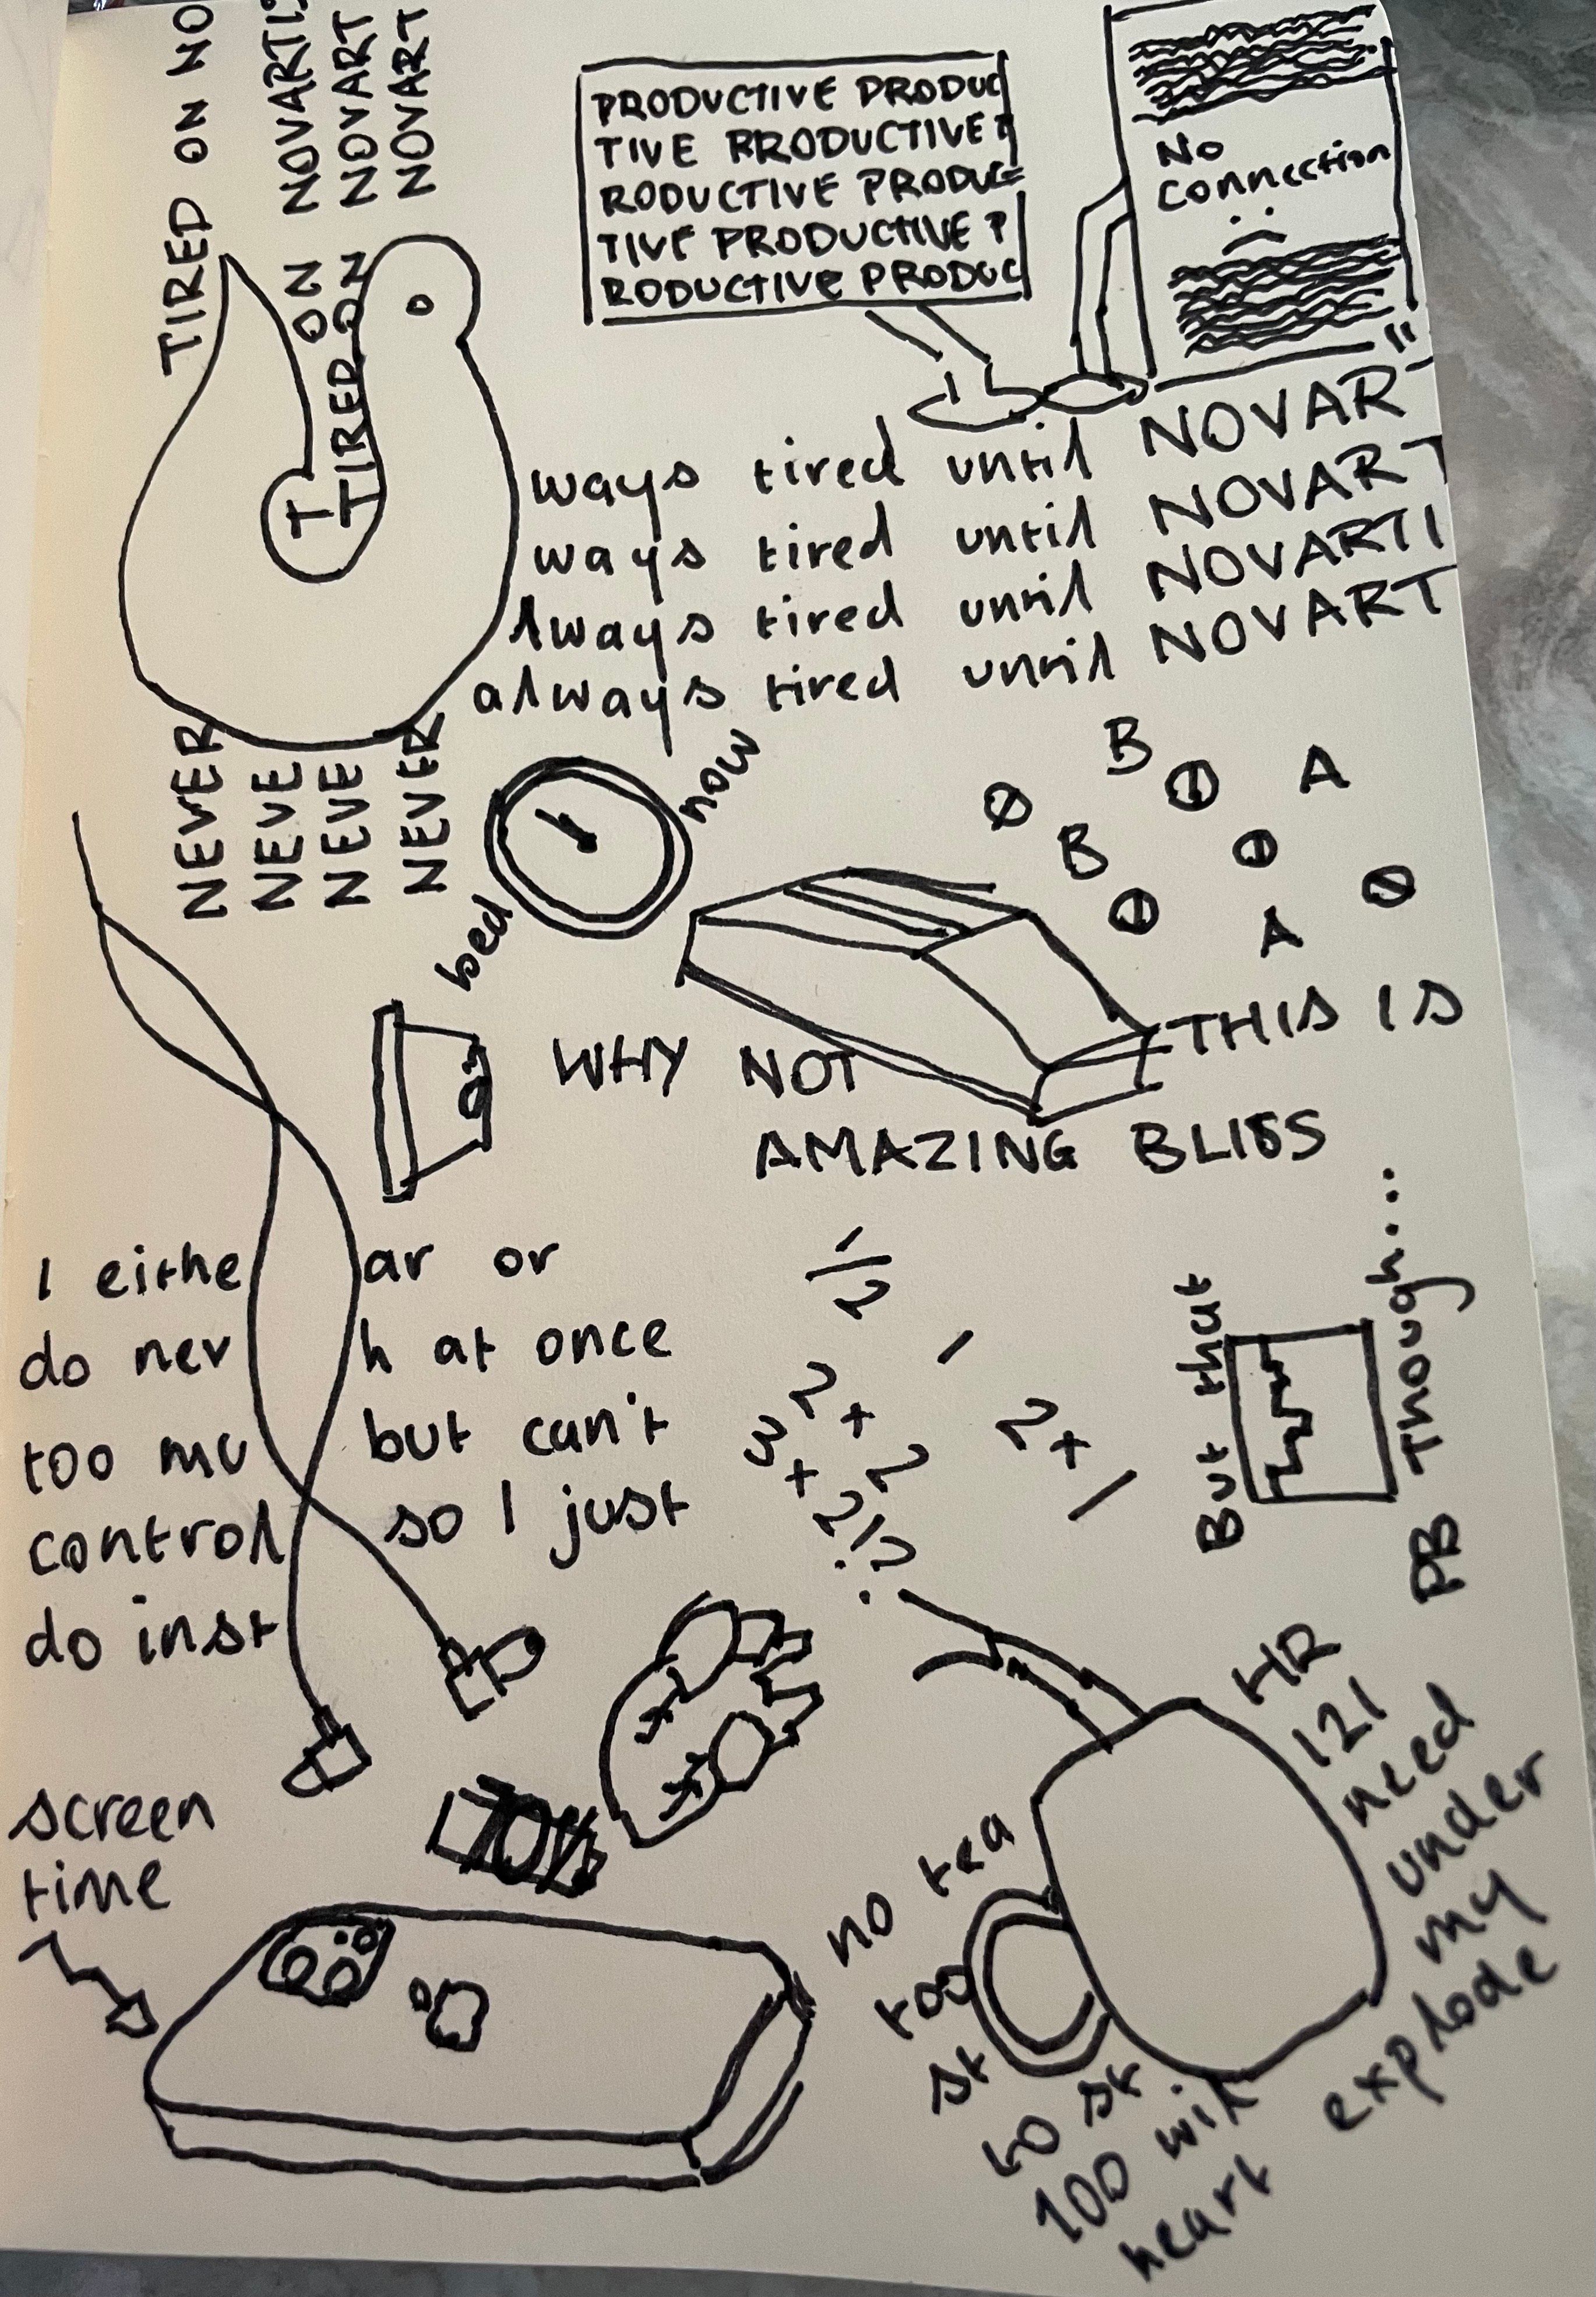 TIRED ON NO
ON NOVARTIS
TIRED ON NOVART
NOVART
T
PRODUCTIVE PRODUC
TIVE PRODUCTIVE P
RODUCTIVE PRODUCE
TIVE PRODUCTIVE P
RODUCTIVE PRODUC
No
connection
:(
ways tired until NOVART
ways tired until NOVART
lways tired until NOVARTI
always tired until NOVART
NEVER
NEVE
NEVE
NEVER
bed
now
B
A
B
A
WHY NOT
THIS IS
AMAZING BLISS
I eithe ar or
do nev h at once
too mu but can't
control so I just
do inst
1/2
1
2+2
3+2!?
2+1
But that
PB Though...
screen
time
HR
121
need
under
my
no tea
too
st
to st
100 wit
heart
explode